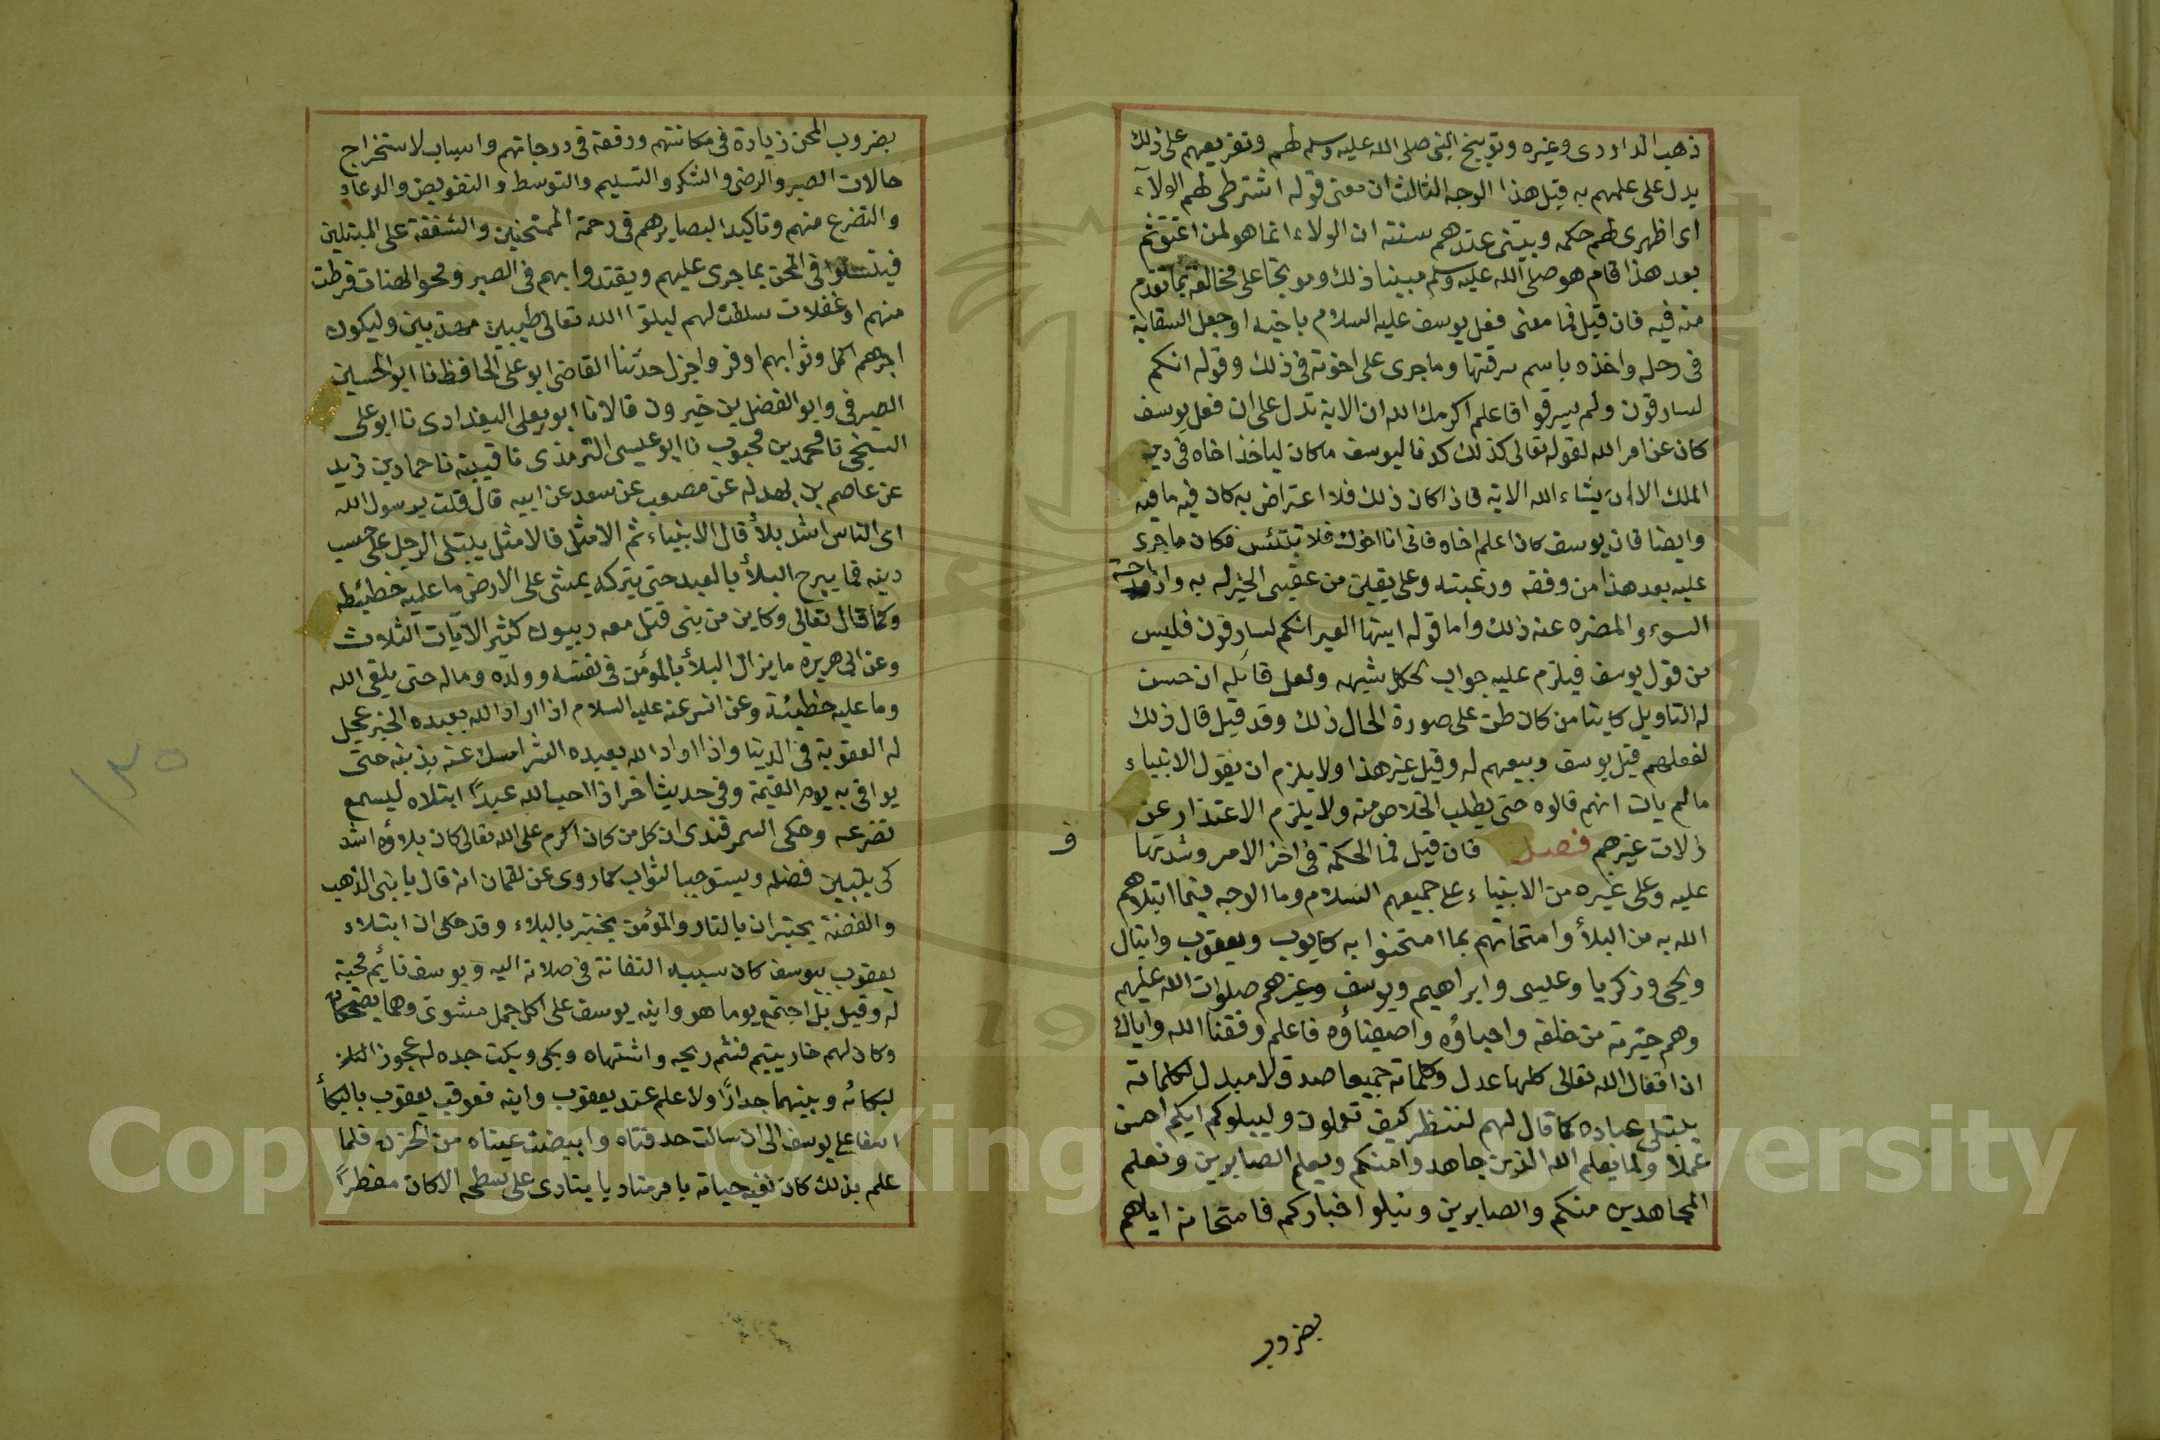 ذهب الداودى وغيره وتوبيخ النبى صلى الله عليه وسلم لهم وتقريعهم على ذلك
يدل على علمهم به قبل هذا الوجه الثالث ان معنى قوله اشترطى لهم الولآء
اى اظهرى لهم حكمه وبينى عندهم سنته ان الولاء انما هو لمن اعتق ثم
بعد هذا قام هو صلى الله عليه وسلم مبينا ذلك وموبخا على مخالفة ما تقدم
منه فيه فان قيل فما معنى فعل يوسف عليه السلام باخيه اوجعل السقاية
فى رحله واخذه باسم سرقتها وما جرى على اخوته فى ذلك وقوله انكم
لسارقون ولم يسرقوا فاعلم اكرمك الله ان الاية تدل على ان فعل يوسف
كان عن امر الله لقوله تعالى كذلك كدنا ليوسف ما كان لياخذ اخاه فى دين
الملك الا ان يشاء الله الاية فاذا كان ذلك فلا اعتراض به كان فيه ما فيه
وايضا فان يوسف كان اعلم اخاه فانى انا اخوك فلا تبتئس فكان ما جرى
عليه بعد هذا من وفقه ورغبته وعلى يقين من عقبى الخير له به وازاحة
السوء والمضره عنه ذلك واما قوله ايتها العير انكم لسارقون فليس
من قول يوسف فيلزم عليه جواب لحل شبهه ولعل قائله ان حسن
له التاويل كاينا من كان ظن على صورة الحال ذلك وقد قيل قال ذلك
لفعلهم قبل يوسف وبيعهم له وقيل غير هذا ولا يلزم ان يقول الانبياء
مالم يات انهم قالوه حتى يطلب الخلاص منه ولا يلزم الاعتذار عن
زلات غيرهم فصل فان قيل فما الحكمة فى اخر الامر وشدتها
ف
عليه وعلى غيره من الانبياء على جميعهم السلام وما الوجه فيما ابتلاهم
الله به من البلأ وامتحانهم بما امتحنوا به كايوب ويعقوب ودانيال
ويحيى وزكريا وعيسى وابراهيم ويوسف وغيرهم صلوات الله عليهم
وهم خيرته من خلقه واحباؤه واصفياؤه فاعلم وفقنا الله واياك
ان افعال الله تعالى كلها عدل وكلماته جميعا صدق لا مبدل لكلماته
يبتلى عباده كما قال لهم لننظر كيف تعملون وليبلوكم ايكم احسن
عملا ولما يعلم الله الذين جاهدوا منكم ويعلم الصابرين ونعلم
المجاهدين منكم والصابرين ونبلو اخباركم فامتحانه اياهم
بضروب
بضروب المحن زيادة فى مكانتهم ورفعة فى درجاتهم واسباب لاستخراج
حالات الصبر والرضى والشكر والتسليم والتوسط والتفويض والدعاء
والتضرع منهم وتاكيد البصايرهم فى رحمة الممتحنين والشفقة على المبتلين
فيتسلوا فى المحن بما جرى عليهم ويقتدوا بهم فى الصبر ومحو الهنات فرطت
منهم او غفلات سلفت لهم ليلقوا الله تعالى طيبين مهذبين وليكون
اجرهم اكمل وثوابهم اوفر واجزل حدثنا القاضى ابو على الحافظ نا ابو الحسين
الصيرفى وابو الفضل بن خيرون قالا نا ابو يعلى البغدادى نا ابو على
السنجى نا محمد بن محبوب نا ابو عيسى الترمذى نا قتيبة نا حماد بن زيد
عن عاصم بن بهدله عن مصعب عن سعد عن ابيه قال قلت يرسول الله
اى الناس اشد بلأ قال الانبياء ثم الامثل فالامثل يبتلى الرجل على حسب
دينه فما يبرح البلأ بالعبد حتى يتركه يمشى على الارض ما عليه خطيئة
وكما قال تعالى وكاين من نبى قتل معه ربيون كثير الآيات الثلاث
وعن ابى هريرة ما يزال البلأ بالمؤمن فى نفسه وولده وماله حتى يلقى الله
وما عليه خطيئة وعن انس عنه عليه السلام اذا اراد الله بعبده الخير عجل
له العقوبة فى الدنيا واذا اراد الله بعبده الشر امسك عنه بذنبه حتى
يوافى به يوم القيمة وفى حديث اخر اذا احب الله عبدًا ابتلاه ليسمع
تضرعه وحكى السمرقندى ان كل من كان اكرم على الله تعالى كان بلاؤه اشد
كى يتبين فضله ويستوجب الثواب كما روى عن لقمان انه قال يا بنى الذهب
والفضة يختبران بالنار والمؤمن يختبر بالبلاء وقد حكى ان ابتلاء
يعقوب بيوسف كان سببه التفاتة فى صلاته اليه ويوسف نائم محبة
له وقيل بل اجتمع يوما هو وابنه يوسف على اكل حمل مشوى وهما يضحكان
وكان لهم جار يتيم فشم ريحه واشتهاه وبكى وبكت جده له عجوز
لبكائه وبينهما جدارًا ولا علم عند يعقوب وابنه فعوقب يعقوب بالبكأ
اسفا على يوسف الى ان سالت حدقتاه وابيضت عيناه من الحزن فلما
علم بذلك كان بقية حياته يامر مناديا ينادى على سطحه الا كان مفطرًا
١٣٥
Copyright © King Saud University